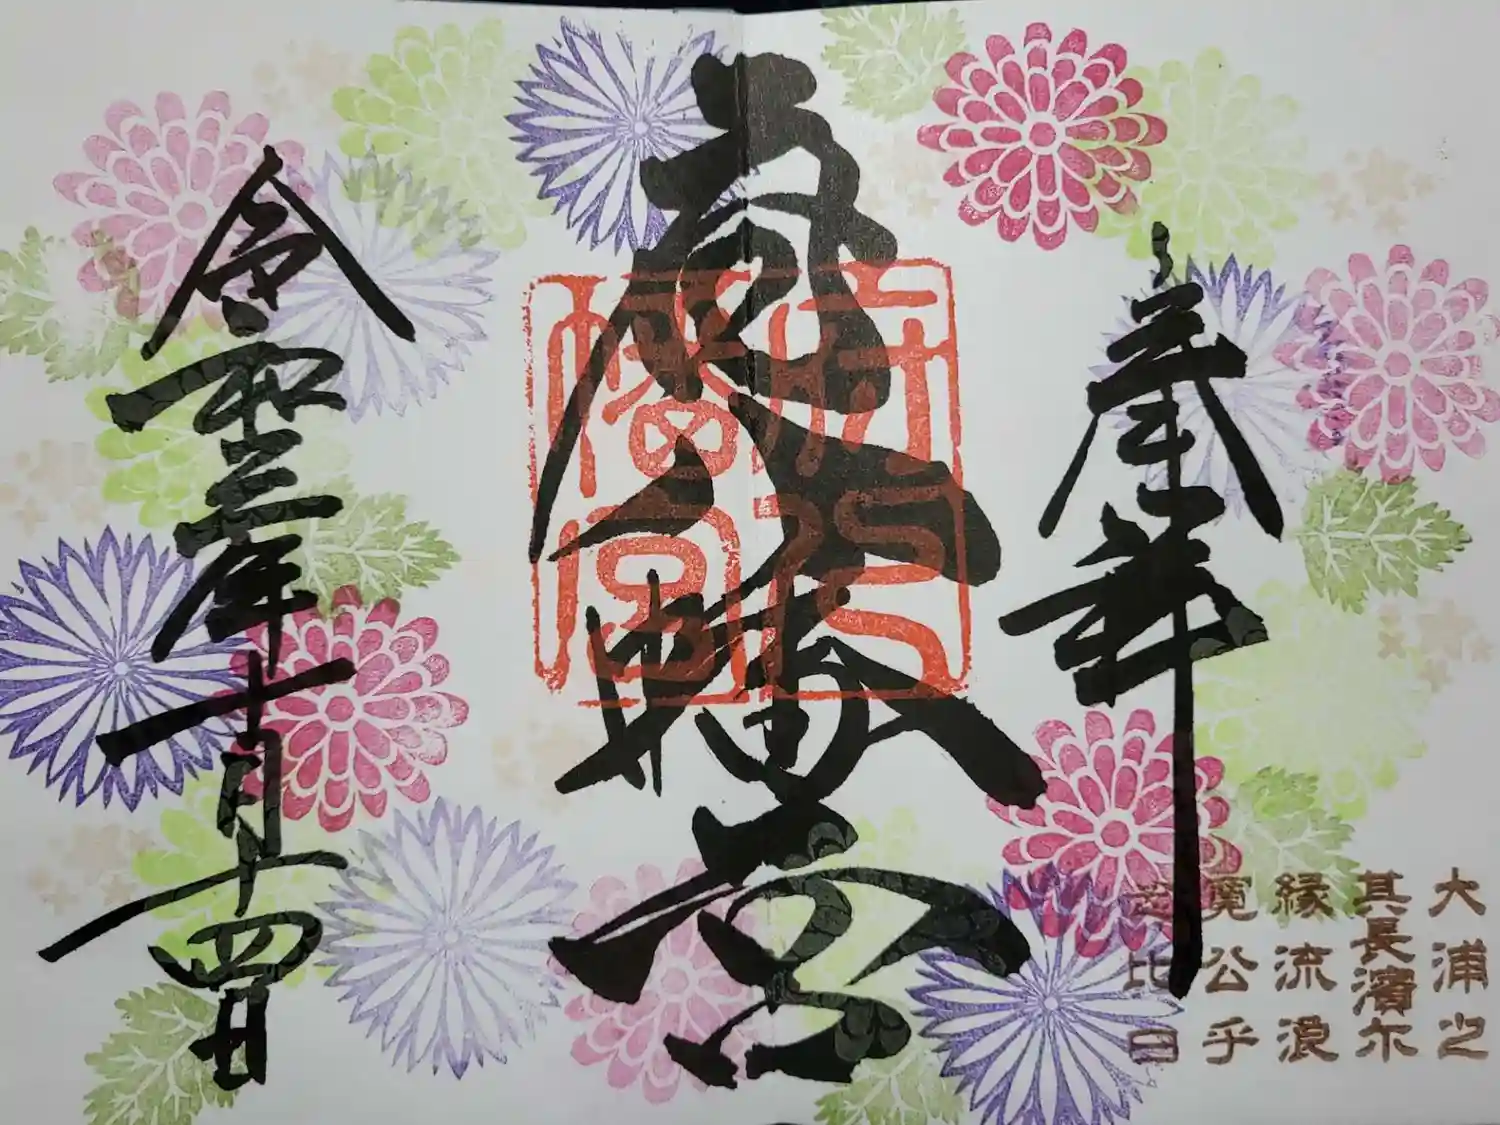 奉拝
府八幡宮
府八
幡宮
令和三年十月十四日
大浦之
其長濱尓
縁流浪
寛公乎
念比日